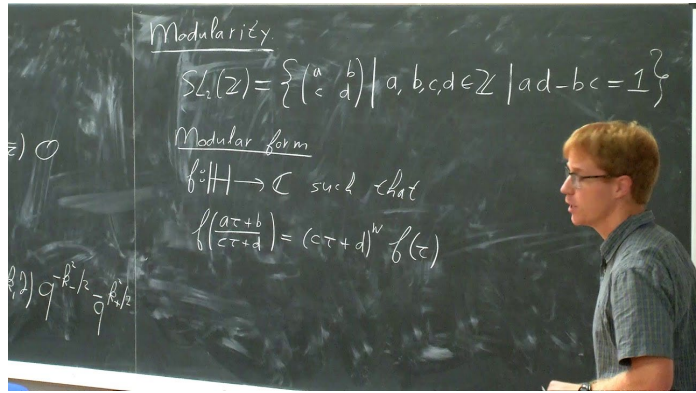 Modularity.
SL₂(ℤ) = {(a b c d) | a, b, c, d ∈ ℤ | ad - bc = 1}
Modular form
f: ℍ → ℂ such that
f((aτ+b)/(cτ+d)) = (cτ+d)^w f(τ)
) O
) q^{-k_-^2/2} \bar{q}^{k_+^2/2}